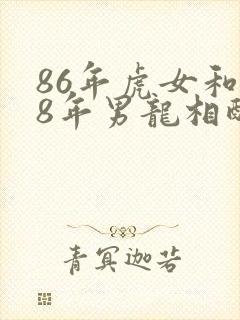 86年虎女和
8年男龍相配
青冥迦若